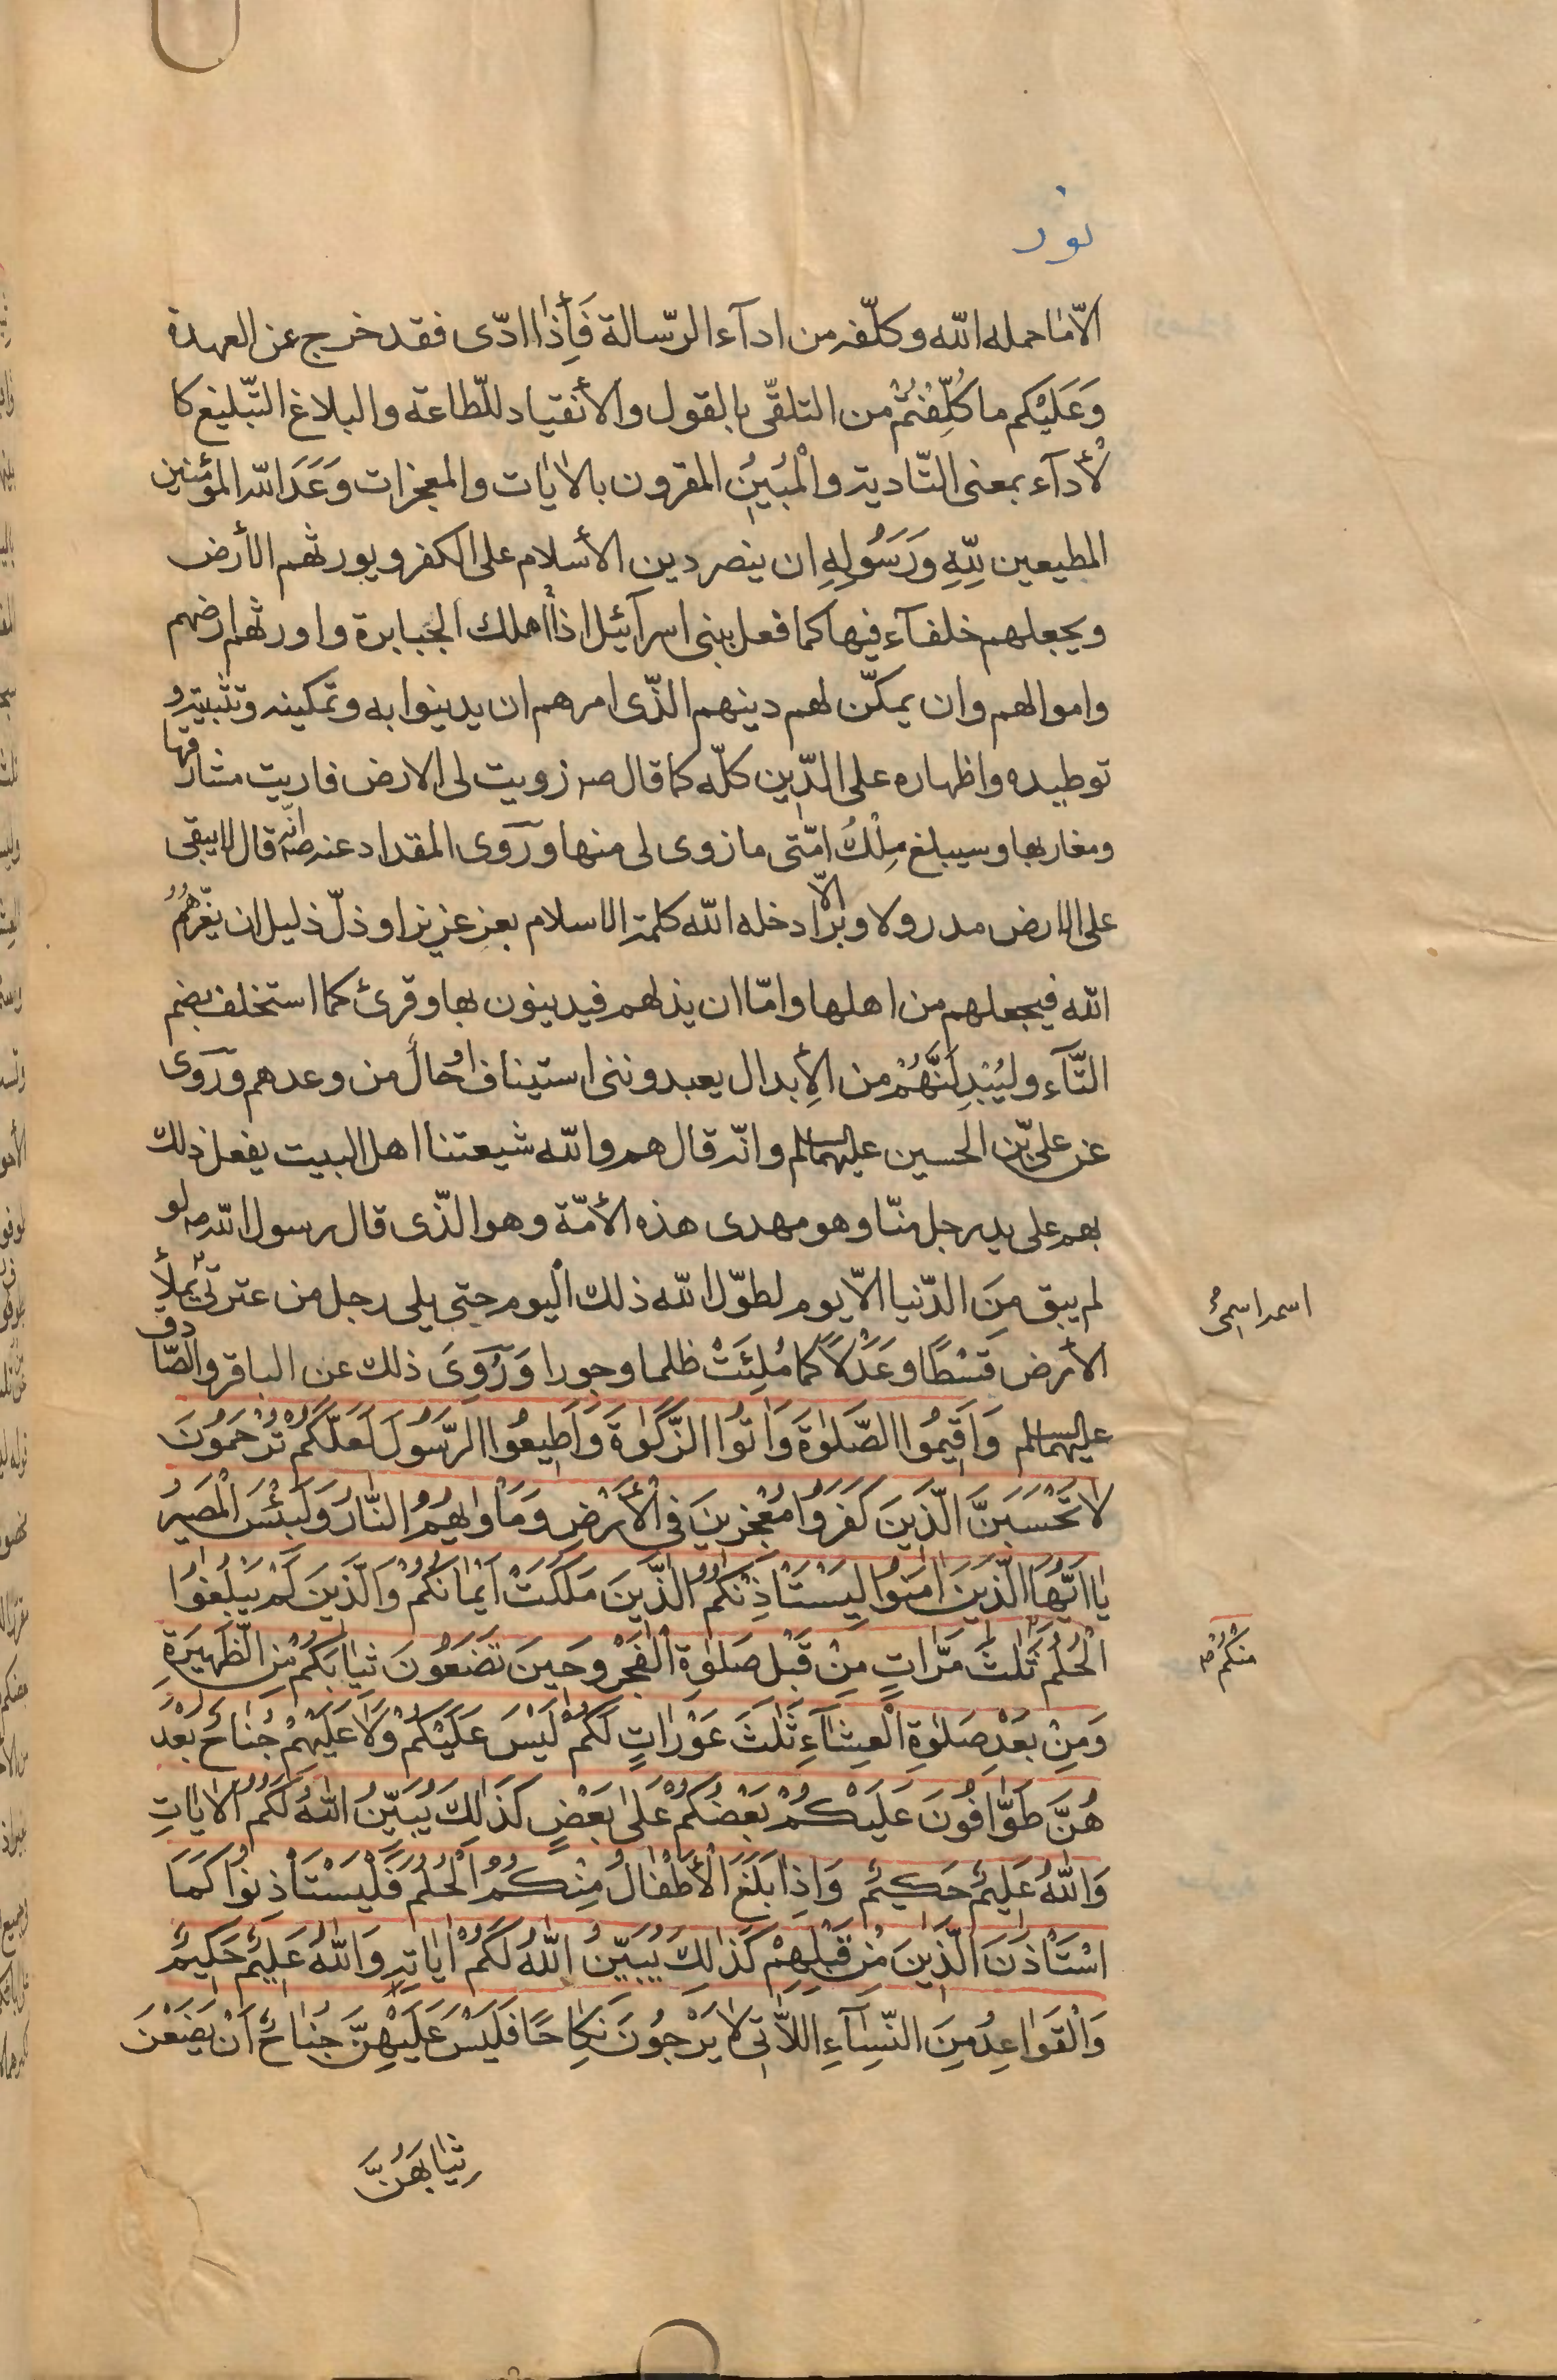 نور
الّا ما حمله اللّه و كلّفه من ادآء الرّسالة فَأِذا ادّى فقد خرج عن العهدة
وَعَلَيْكم ما كُلِّفْتُمْ من التلقّى بالقول والأنقياد للّطاعة والبلاغ التّبليغ كا
لْأدآء بمعنى التّادية والْمُبينُ المقرون بالايٰات والمعجزات وَعَدَ اللّه المؤمنين
المطيعين لِلّهِ وَرَسُولِهِ ان ينصر دين الأسلام على الكفر و يورثهم الأرض
ويجعلهم خلفآء فيها كما فعل ببنى اسرآئيل اذا اهلك الجبابرة واورثهم ارضهم
واموالهم وان يمكّن لهم دينهم الذّى امرهم ان يدينوا به وتمكينه وتثبيته و
توطيده واظهاره على الدّين كلّه كما قال صه زويت لى الارض فاريت مشارقها
ومغاربها وسيبلغ مِلْكُ امّتى ما زوى لى منها ورَوى المقداد عنه صه انّه قال لايبقى
على الارض مدر ولا وبر الّا ادخله اللّه كلمة الاسلام بعز عزيز او ذلّ ذليل ان يعّزهُمُ
اللّه فيجعلهم من اهلها وامّا ان يذلهم فيدينون بها وقرئ كما استخلف بضم
التّآء وليُبْدِلَنَّهُمْ من الأِبدال يعبدوننى استيناف اوُحالٌ من وعدهم ورَوى
عن علىّ بن الحسين عليهما السلم وانّه قال هم واللّه شيعتنا اهل البيت يفعل ذلك
بهم على يد رجل منّا وهو مهدى هذه الأمّة وهو الذّى قال رسول اللّه صه لو
لم يبق مِنَ الدّنيا الّا يوم لطوّل اللّه ذلك اْليوم حتى يلى رجل من عترتى يملأ
اسمه اسمىُ
الأرض قسْطًا وعَدْلًا كما مُلِئَتْ ظلما وجورا وَرَوىَ ذلك عن الباقر والصّادق
عليهما السلم وَاَقيمُوا الصَّلوٰةَ وَاٰتوُا الزَّكوٰةَ وَاَطيعوُا الرَّسُولَ لَعَلَّكُمْ تُرْحَمُونَ
لا تَحْسَبَنَّ الَّذينَ كَفَروُا مُعْجِزينَ فى اْلأَرْضِ وَمَاْواٰيهُمُ النّارُ وَلَبِئْسَ الْمَصيرُ
يٰا اَيُّهَا الَّذينَ اٰمَنوُا لِيَسْتَأْذِنْكُمُ الَّذينَ مَلَكَتْ اَيْمٰانُكُمْ وَالَّذينَ لَمْ يَبْلُغوُا
الْحُلُمَ ثَلٰثَ مَرّاتٍ مِنْ قَبْلِ صَلوٰةِ الْفَجْرِ وَحينَ تَضَعُونَ ثِيٰابَكُمْ مِنَ الظَّهيرَةِ
منْكُمْ صه
وَمِنْ بَعْدِ صَلوٰةِ الْعِشٰآءِ ثَلٰثَ عَوْرٰاتٍ لَكُمْ لَيْسَ عَلَيْكُمْ وَلٰا عَلَيْهِمْ جُنٰاحٌ بَعْدَ
هُنَّ طَوّٰافُونَ عَلَيْكُمْ بَعْضُكُمْ عَلىٰ بَعْضٍ كَذٰلِكَ يُبَيِّنُ اللّٰهُ لَكُمُ الْاٰيٰاتِ
وَاللّٰهُ عَليمٌ حَكيمٌ وَاِذٰا بَلَغَ الْأَطْفٰالُ مِنْكُمُ الْحُلُمَ فَلْيَسْتَأْذِنوُا كَمَا
اسْتَأْذَنَ الَّذينَ مِنْ قَبْلِهِمْ كَذٰلِكَ يُبَيِّنُ اللّٰهُ لَكُمْ اٰيٰاتِهِ وَاللّٰهُ عَليمٌ حَكيمٌ
وَالْقَوٰاعِدُ مِنَ النِّسٰآءِ اللّاٰتى لٰا يَرْجُونَ نِكٰاحًا فَلَيْسَ عَلَيْهِنَّ جُنٰاحٌ اَنْ يَضَعْنَ
ثِيٰابَهُنَّ